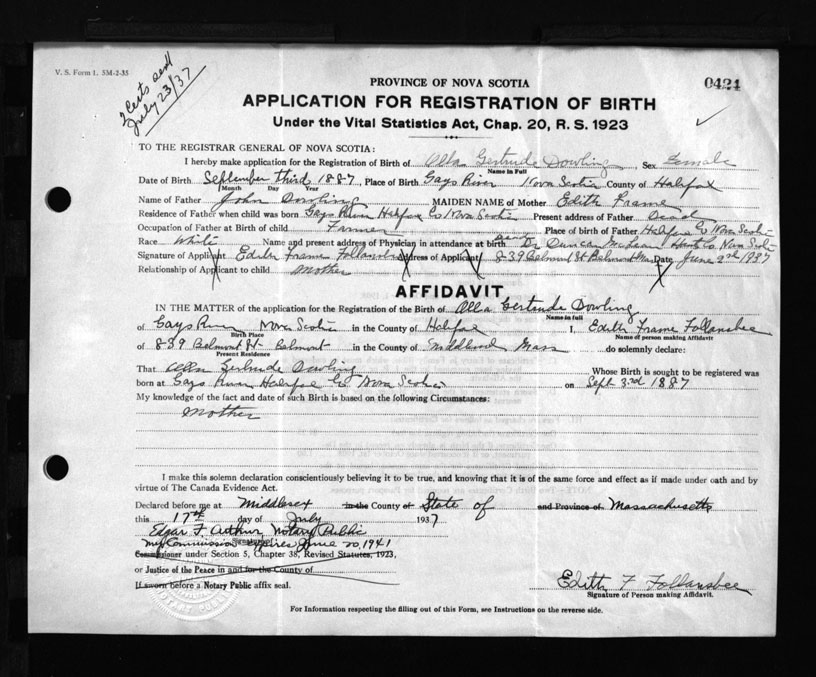 V. S. Form 1. 5M-2-35
2 Certs sent
July 23/37
0424
PROVINCE OF NOVA SCOTIA
APPLICATION FOR REGISTRATION OF BIRTH
Under the Vital Statistics Act, Chap. 20, R. S. 1923
TO THE REGISTRAR GENERAL OF NOVA SCOTIA:
I hereby make application for the Registration of Birth of Alla Gertrude Dowling Sex Female
Name in Full
Date of Birth September third 1887, Place of Birth Gays River Nova Scotia County of Halifax
Month Day Year
Name of Father John Dowling MAIDEN NAME of Mother Edith Frame
Residence of Father when child was born Gays River Halifax Co Nova Scotia Present address of Father Dead
Occupation of Father at Birth of child Farmer Place of birth of Father Halifax Co Nova Scotia
Race White Name and present address of Physician in attendance at birth Dead Dr Duncan Hants Co. Nova Scotia
Signature of Applicant Edith Frame Follansbee Address of Applicant 839 Belmont St Belmont Mass Date June 2nd 1937
Relationship of Applicant to child Mother
AFFIDAVIT
IN THE MATTER of the application for the Registration of the Birth of Alla Gertrude Dowling
Name in full
of Gays River Nova Scotia in the County of Halifax I, Edith Frame Follansbee
Birth Place Name of person making Affidavit
of 839 Belmont St. Belmont in the County of Mass do solemnly declare:
Present Residence
That Alla Gertrude Dowling Whose Birth is sought to be registered was
born at Gays River Halifax Co Nova Scotia on Sept 3rd 1887
My knowledge of the fact and date of such Birth is based on the following Circumstances:
Mother
I make this solemn declaration conscientiously believing it to be true, and knowing that it is of the same force and effect as if made under oath and by
virtue of The Canada Evidence Act.
Declared before me at Middlesex in the County of State of and Province of Massachusetts
this 17th day of July 1937
Edgar F. Arthur Notary Public
Signature
My Commission expires June 20, 1941
Commissioner under Section 5, Chapter 38, Revised Statutes, 1923,
or Justice of the Peace in and for the County of
If sworn before a Notary Public affix seal.
Edith F Follansbee
Signature of Person making Affidavit.
For Information respecting the filling out of this Form, see Instructions on the reverse side.